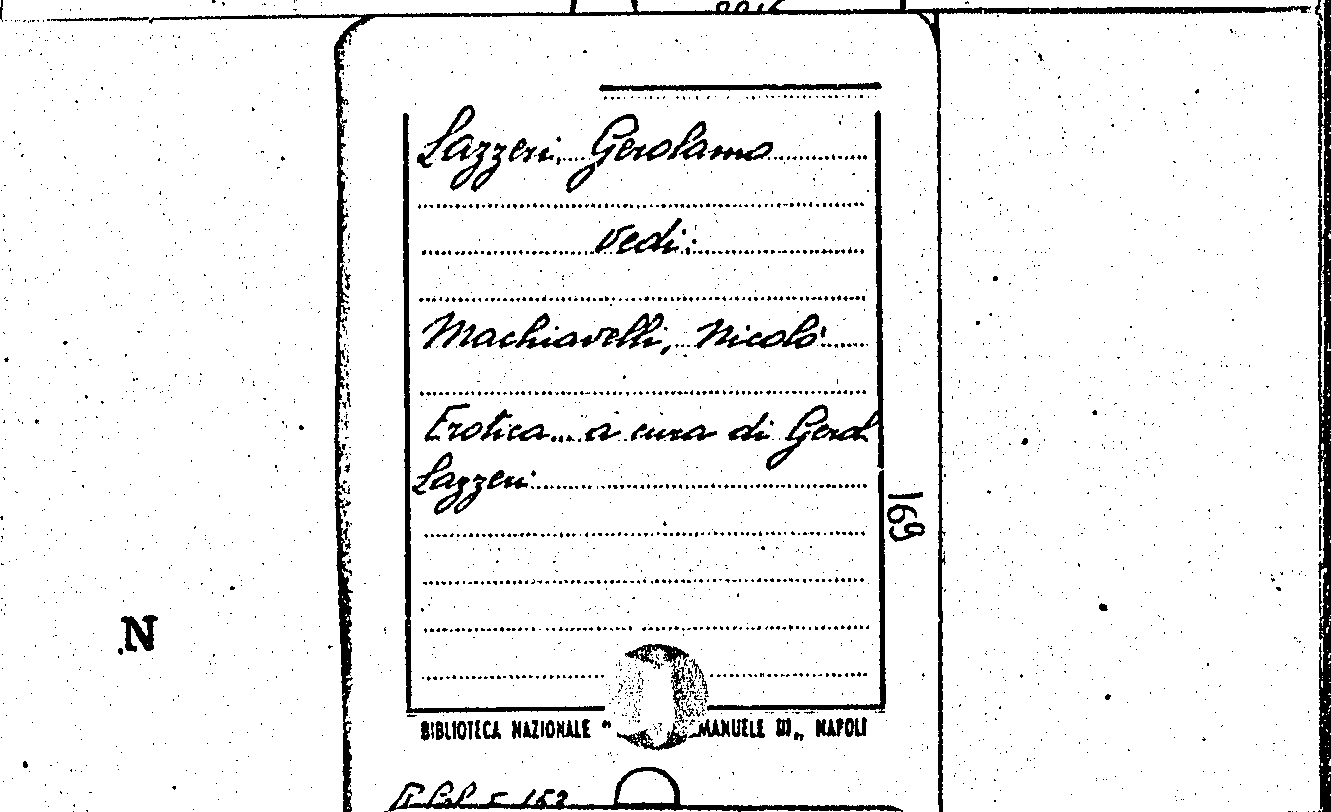 Lazzeri, Gerolamo
Vedi:
Machiavelli, Nicolò
Erotica... a cura di Gerol.
Lazzeri
169
N
BIBLIOTECA NAZIONALE " MANUELE III„ NAPOLI